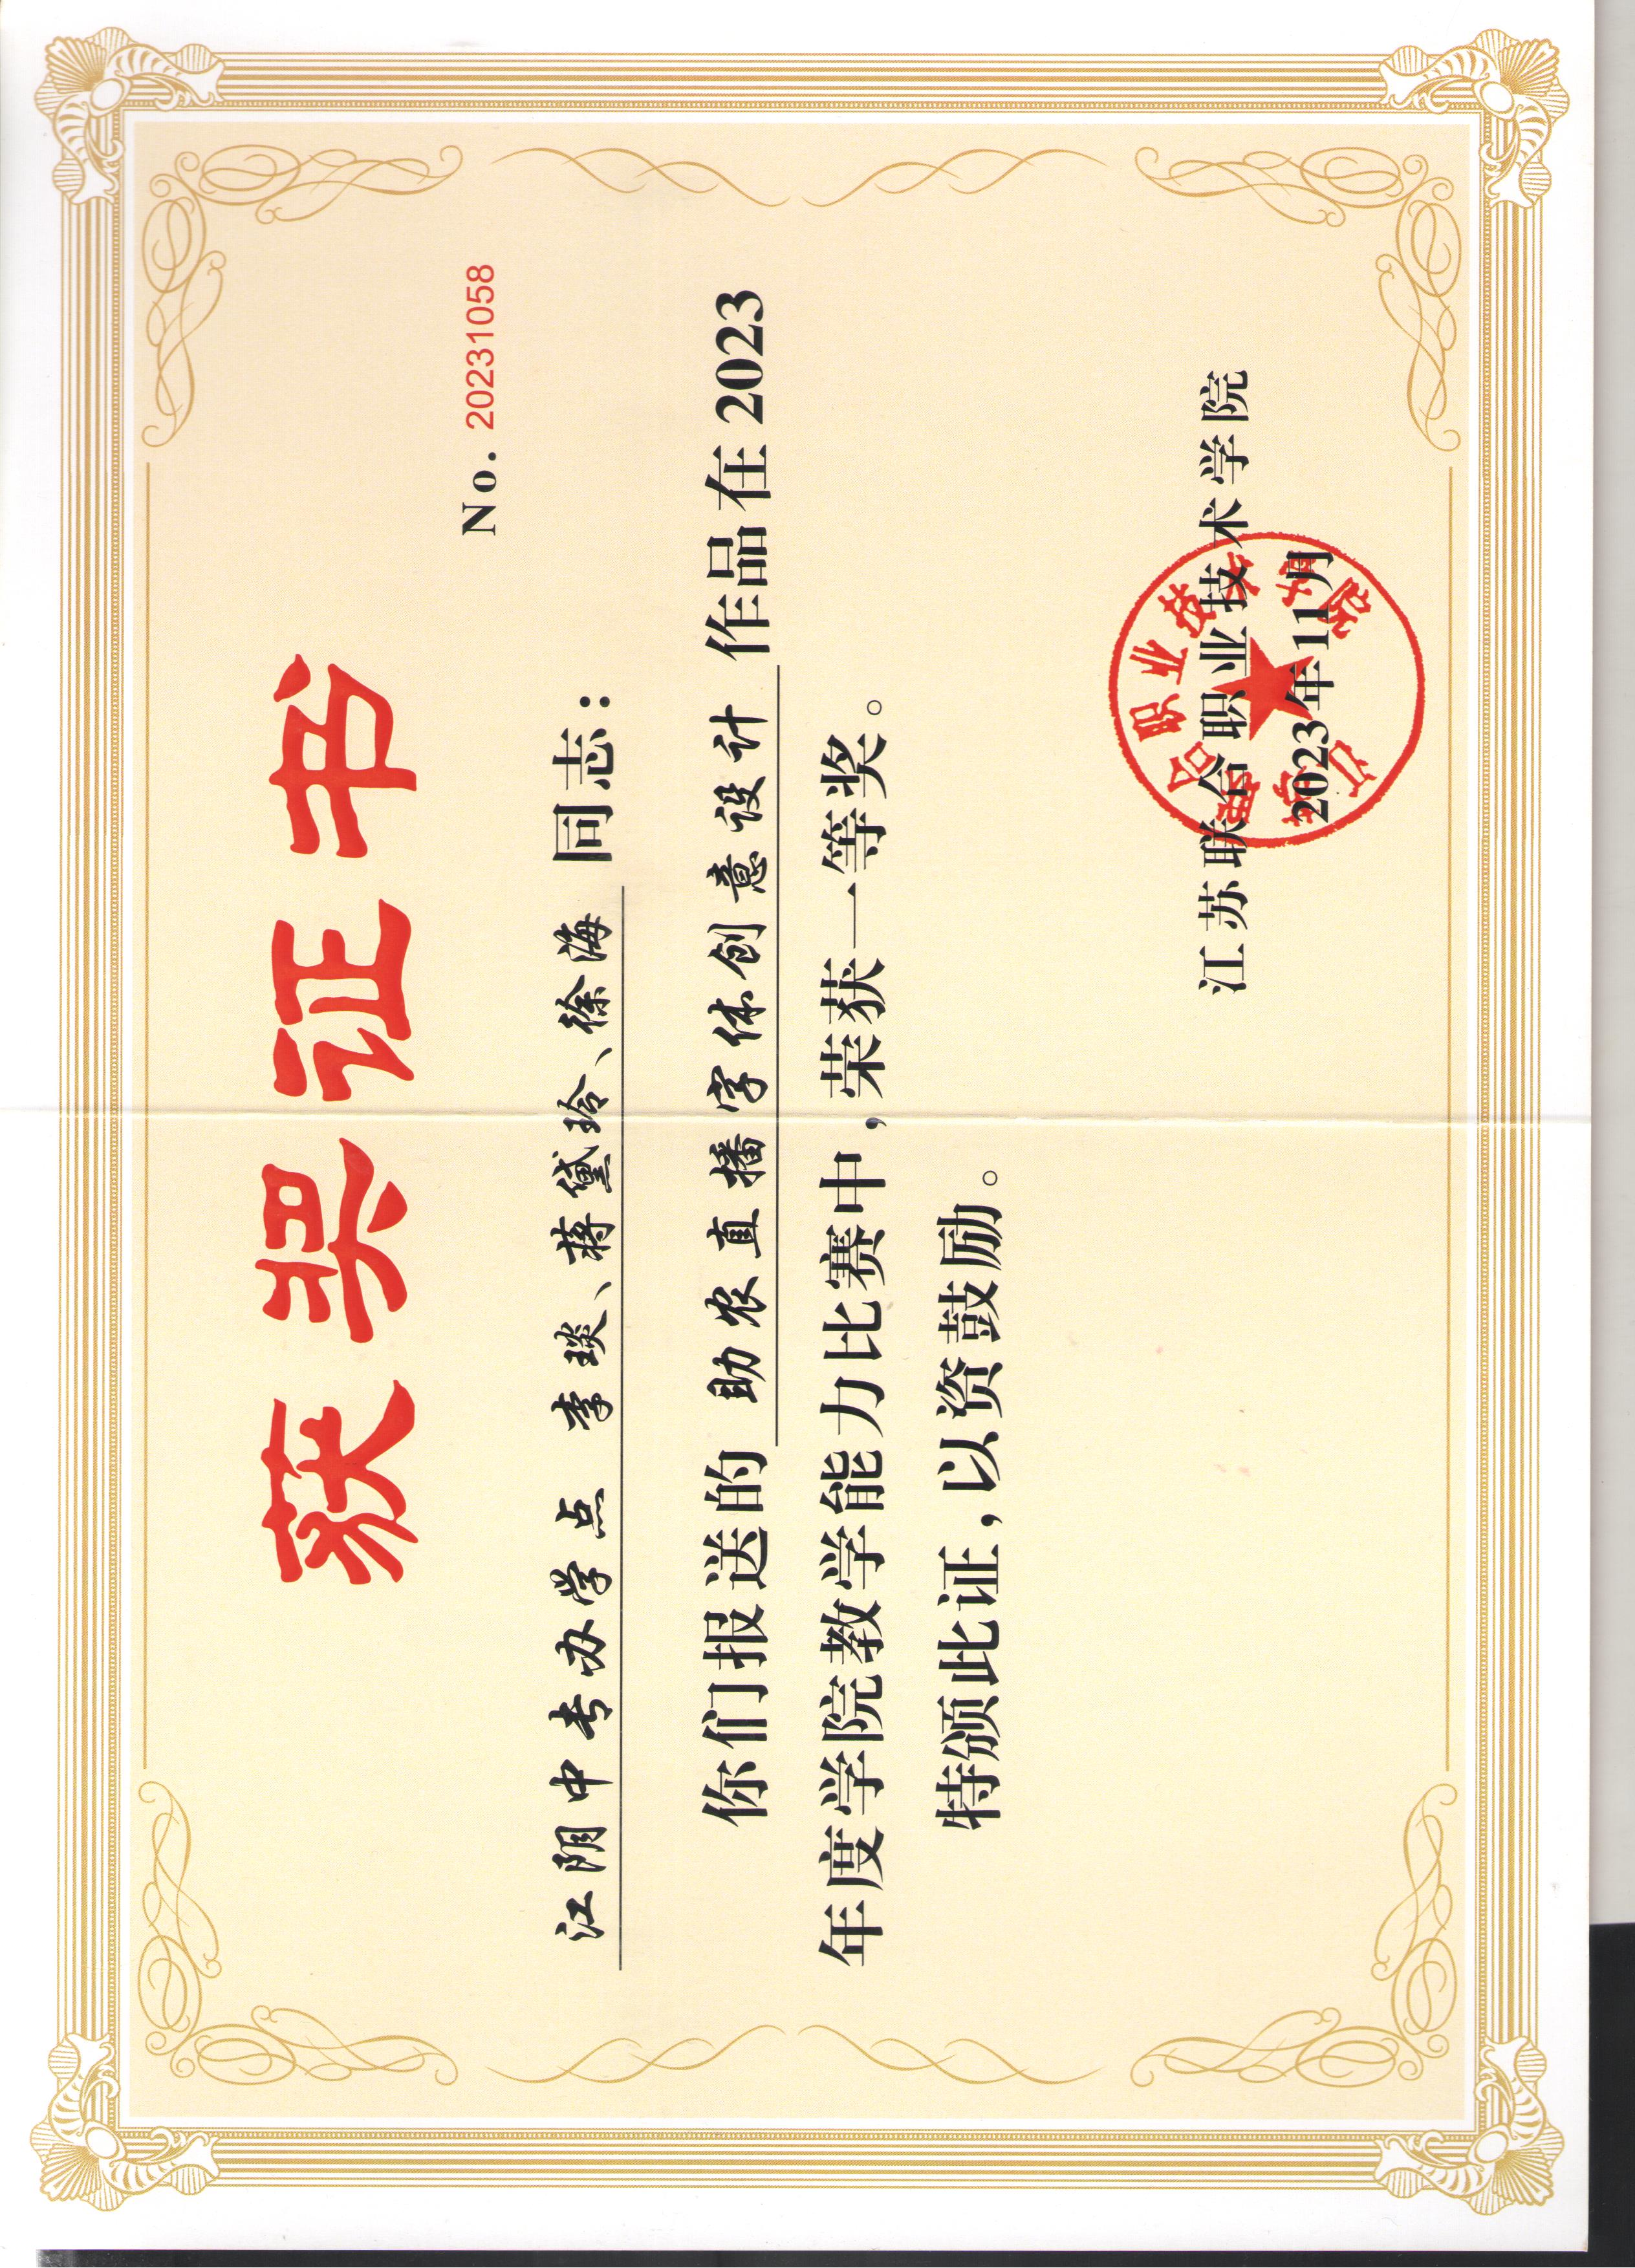 获奖证书
No. 20231058
江阴中专办学点 李琰、蒋黛玲、徐海 同志：
你们报送的 助农直播字体创意设计 作品在 2023
年度学院教学能力比赛中，荣获一等奖。
特颁此证，以资鼓励。
江苏联合职业技术学院
2023年11月
江苏联合职业技术学院